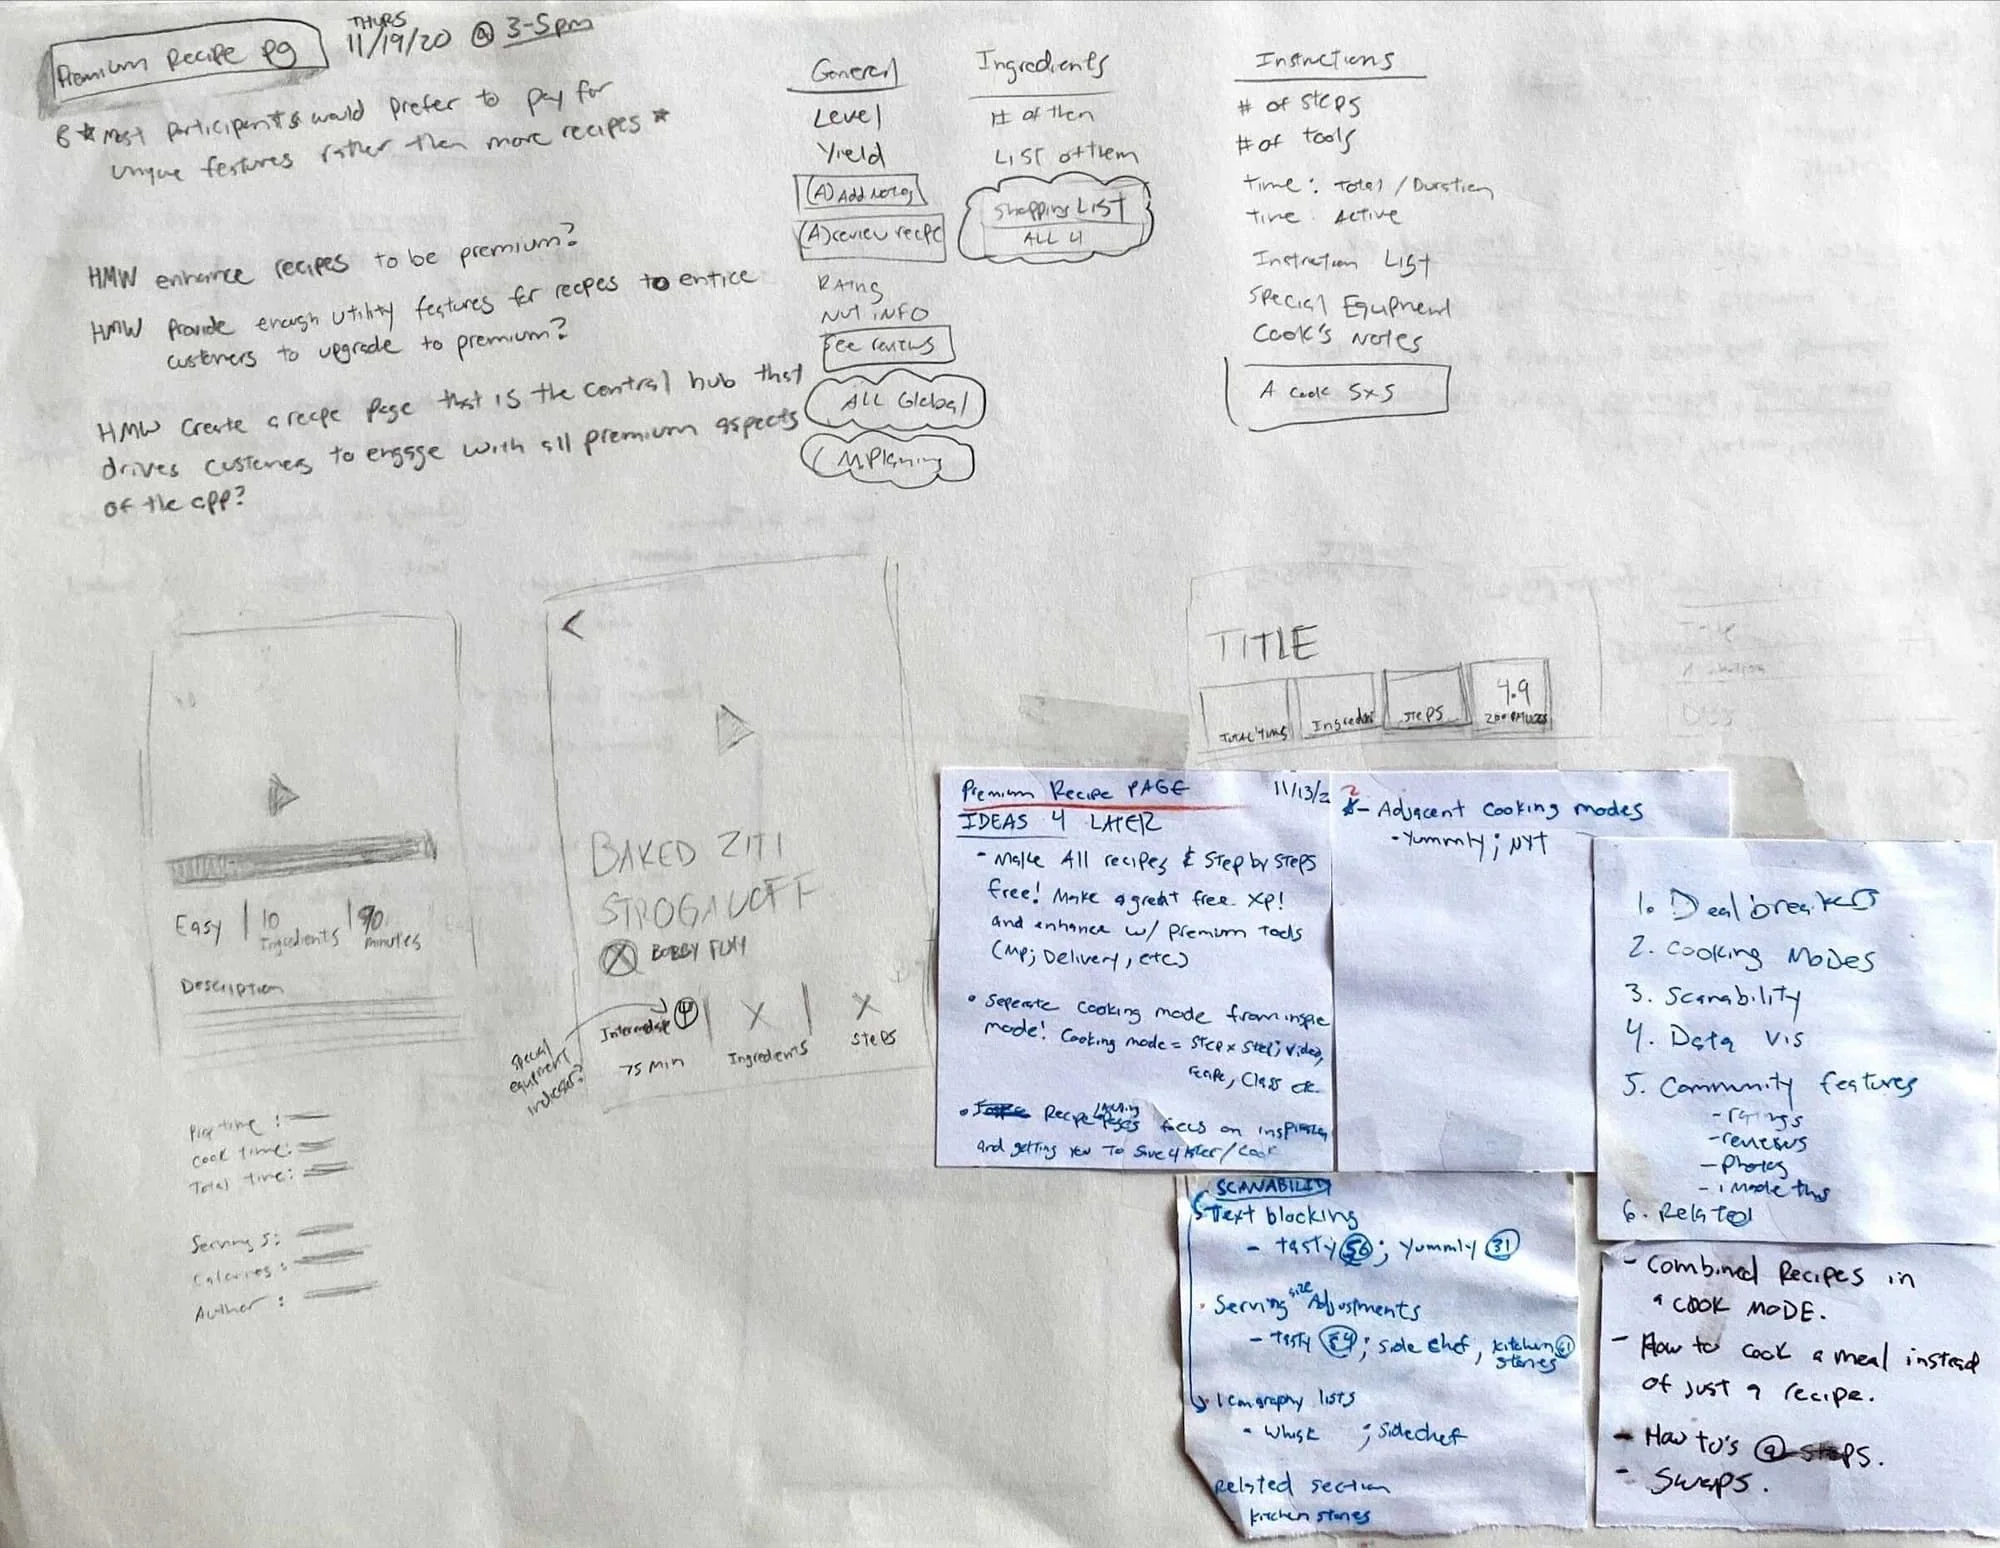 Premium Recipe pg
THURS
11/19/20 @ 3-5pm
B * Most participants would prefer to pay for
unique features rather then more recipes *
HMW enhance recipes to be premium?
HMW provide enough utility features for recipes to entice
customers to upgrade to premium?
HMW create a recipe page that is the central hub that
drives customers to engage with all premium aspects
of the app?
General
Level
Yield
(A) Add notes
(A) review recipe
Rating
Nut info
See reviews
ALL Global
M.Planning
Ingredients
# of them
List of them
Shopping LIST
ALL 4
Instructions
# of steps
# of tools
time: Total / Duration
time: Active
Instruction List
Special Equipment
Cook's Notes
A cook SxS
Easy | 10 Ingredients | 90 minutes
Description
Prep time:
Cook time:
Total time:
Servings:
Calories:
Author:
<
BAKED ZITI
STROGANOFF
BOBBY FLAY
Intermediate 4 | X | X
75 min Ingredients Steps
special
equipment
indicator?
TITLE
Total time
Ingredients
Steps
4.9
Premium Recipe PAGE 11/13/2
IDEAS 4 LATER
- Make All recipes & Step by Steps
free! Make a great free XP!
and enhance w/ premium tools
(MP; Delivery, etc.)
• Seperate cooking mode from inspire
mode! Cooking mode = Step x Step; video,
recipe, Class etc.
• Recipe Landing Pages focus on inspiration
and getting you to Save 4 later/Cook
2 - Adjacent cooking modes
- Yummly; NYT
1. Deal breakers
2. Cooking Modes
3. Scanability
4. Data Vis
5. Community features
- ratings
- reviews
- photos
- i made this
6. Related
SCANABILITY
Text blocking
- tasty 56; Yummly 31
• Serving size Adjustments
- tasty 54; Side Chef, kitchen 61
stories
Iconography lists
• Whisk ; Sidechef
Related section
kitchen stories
- Combined Recipes in
a COOK MODE.
- How to cook a meal instead
of just a recipe.
- How to's @ steps.
- Swaps.